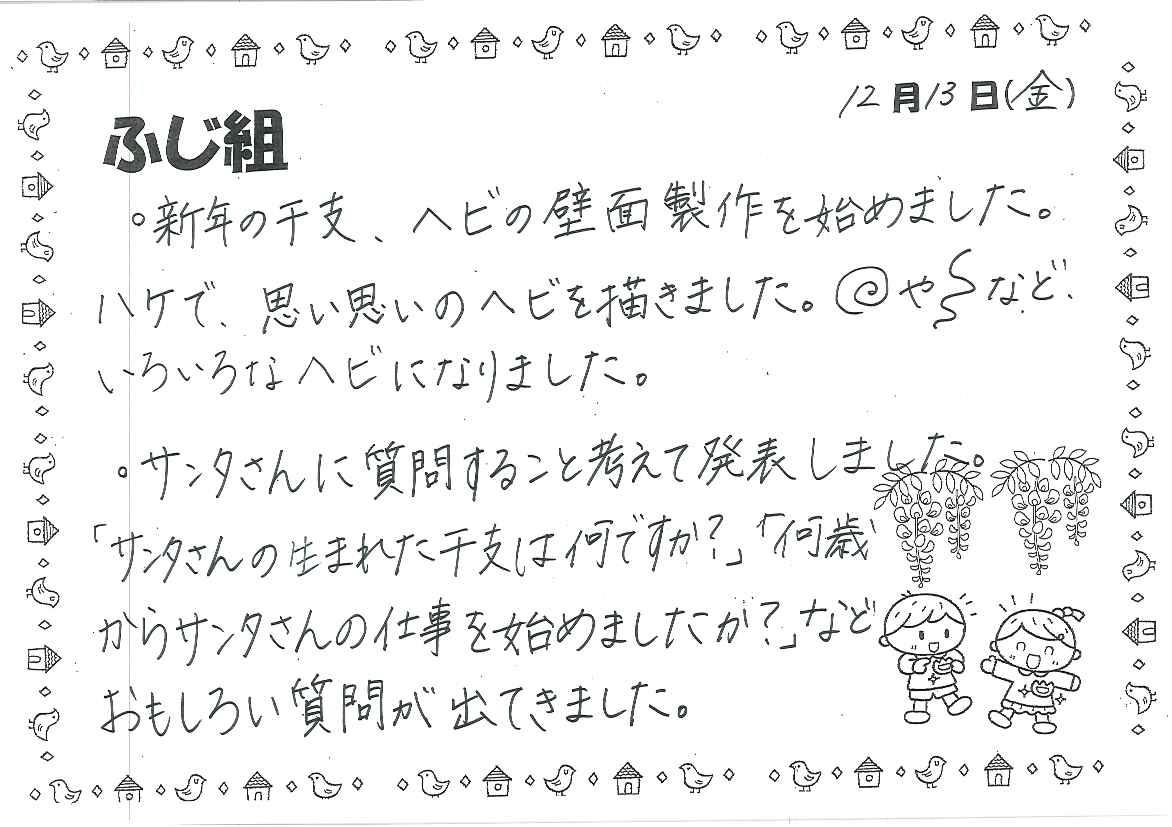 12月13日(金)
ふじ組
。新年の干支、ヘビの壁面製作を始めました。
ハケで、思い思いのヘビを描きました。や など、
いろいろなヘビになりました。
。サンタさんに質問すること考えて発表しました。
「サンタさんの生まれた干支は何ですか?」「何歳
からサンタさんの仕事を始めましたか?」など
おもしろい質問が出てきました。